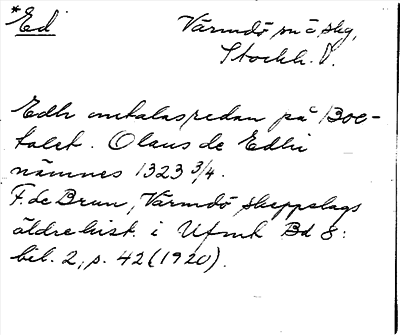 *Ed Värmdö sn o. skg,
Stockh. l.
Edh omtalas redan på 1300-
talet. Olaus de Edhi
nämnes 1323 3/4.
F. de Brun, Värmdö skeppslags
äldre hist. i Ufmt Bd 8:
bil. 2, p. 42 (1920).